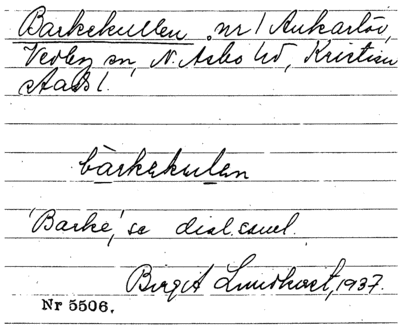 Barkekullen nr 1 Ankarlöv,
Vedby sn, N. Åsbo hd, Kristian
stads l.
bàrkekulen
'Barke', se dial.saml.
Birgit Lundkvist, 1937.
Nr 5506.